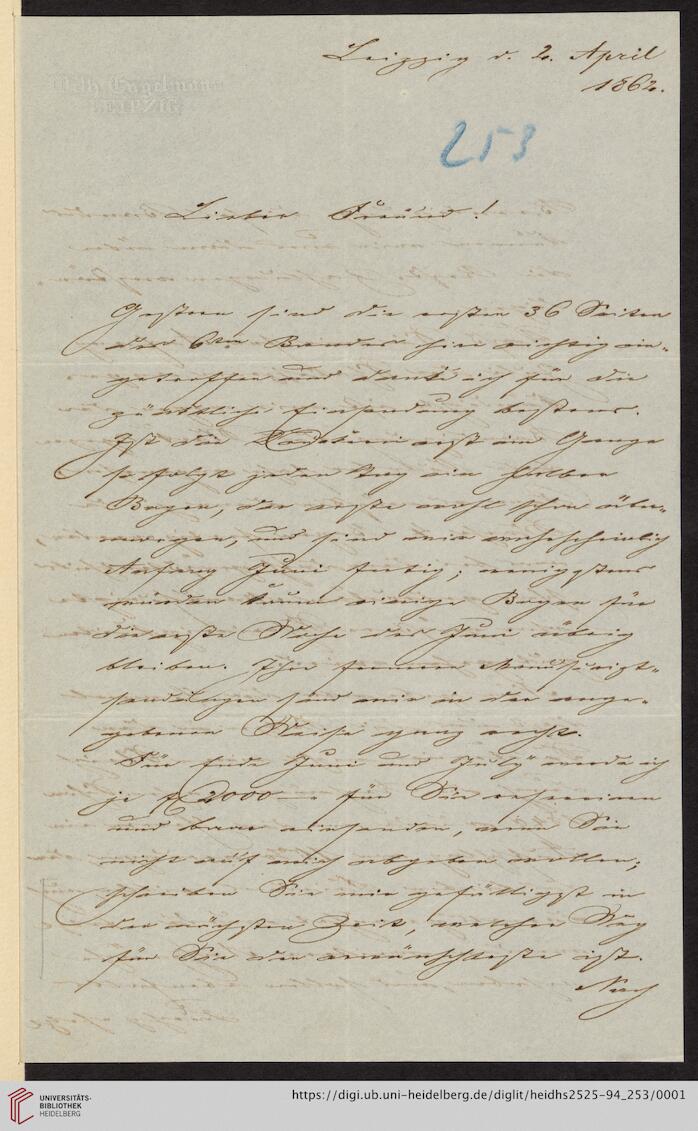 Leipzig d. 2. April
1862.
Wilh. Engelmann
LEIPZIG.
253
Lieber Freund!
Gestern sind die ersten 36 Seiten
des 6ten Bandes hier richtig ein-
getroffen und danke ich für die
pünktliche Einsendung bestens.
Ist die Druckerei erst im Gange
so folgt jeden Tag ein halber
Bogen, der erste wohl schon über-
morgen, und sind wir wahrscheinlich
Anfang Juni fertig; wenigstens
würden kaum einige Bogen für
die erste Woche des Juni übrig
bleiben. Ihre ferneren Manuscript-
sendungen sind mir in der ange-
gebenen Weise ganz recht.
Für Ende Juni und July werde ich
je f 2000 – für Sie reserviren
und baar einsenden, wenn Sie
nicht auf mich abgeben wollen;
schreiben Sie mir gefälligst in
der nächsten Zeit, welcher Weg
für Sie der erwünschteste ist.
Nach
UNIVERSITÄTS-
BIBLIOTHEK
HEIDELBERG
https://digi.ub.uni-heidelberg.de/diglit/heidhs2525-94_253/0001